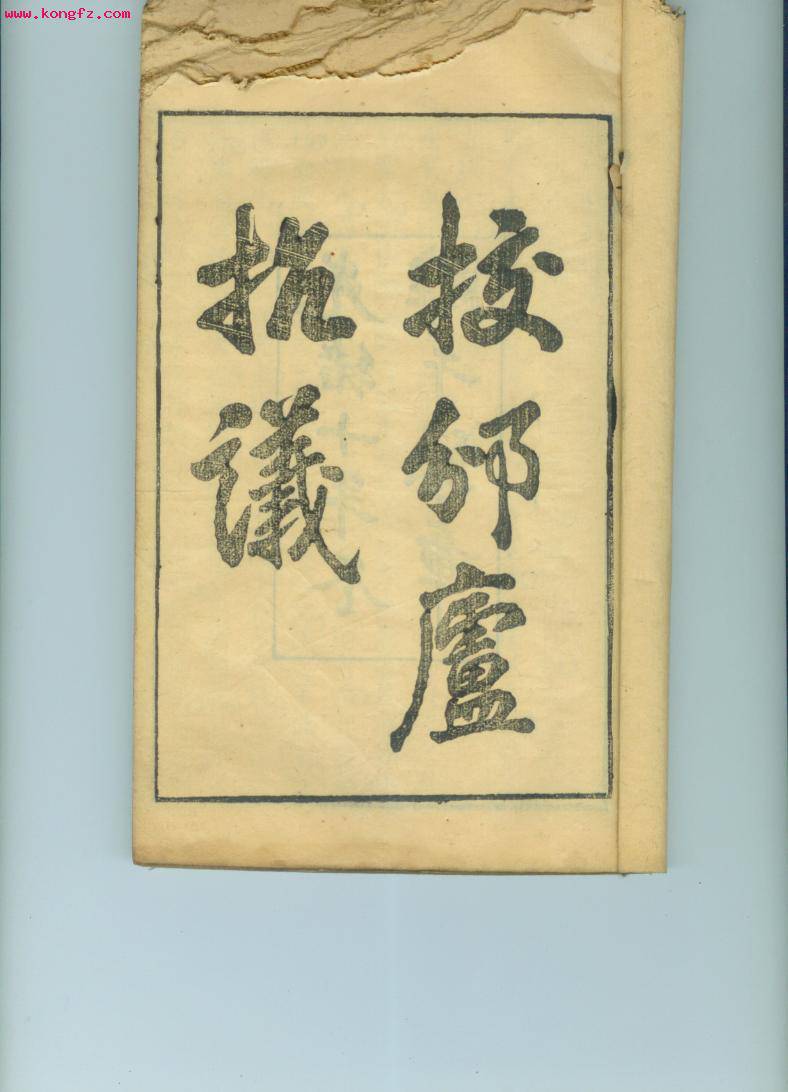 www.kongfz.com
校邠廬
抗議